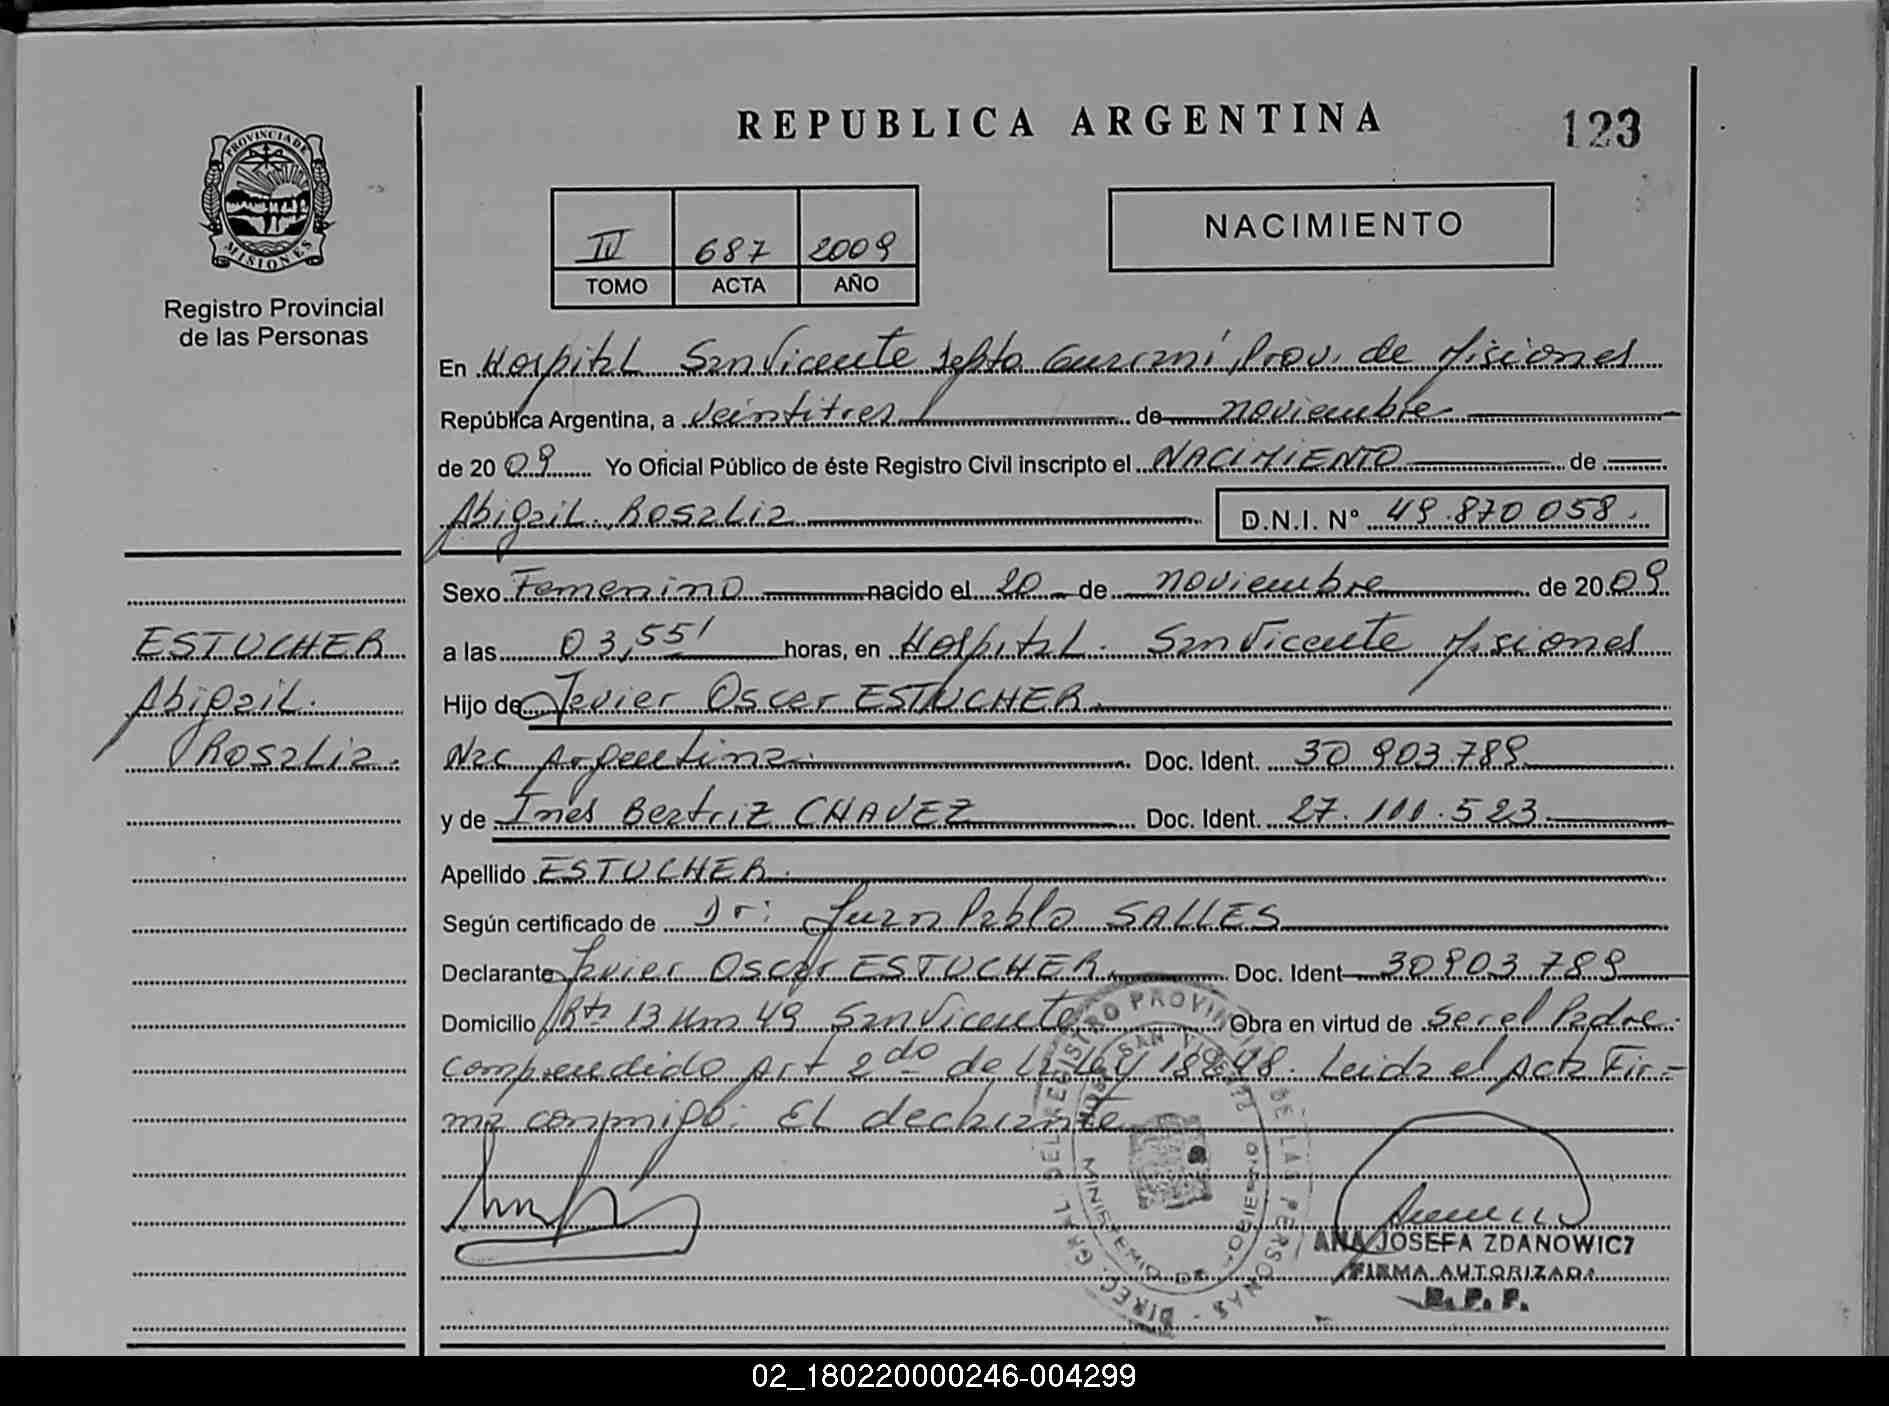 REPUBLICA ARGENTINA
123
PROVINCIA DE MISIONES
Registro Provincial
de las Personas
IV 687 2009
TOMO ACTA AÑO
NACIMIENTO
En Hospital San Vicente Depto Guarani Prov. de Misiones
República Argentina, a veintitres de noviembre
de 20 09 Yo Oficial Público de éste Registro Civil inscripto el NACIMIENTO de
Abigail Rosalia D.N.I. Nº 49.870 058.
Sexo Femenino nacido el 20 de noviembre de 20 09
a las 03,55' horas, en Hospital San Vicente Misiones
Hijo de Javier Oscar ESTUCHER.
Nac Argentina Doc. Ident. 30 903 789
y de Ines Beatriz CHAVEZ Doc. Ident. 27.111.523
Apellido ESTUCHER.
Según certificado de Dr: Juan Pablo SALLES
Declarante Javier Oscar ESTUCHER Doc. Ident 30903 789
Domicilio Rta 13 Km 49 San Vicente Obra en virtud de Ser el Padre.
comprendido Art 2do de la Ley 18248. Leida el Acta Fir-
ma conmigo: El declarante
ESTUCHER
Abigail.
Rosalia.
DIREC. GRAL. DEL REGISTRO PROVINCIAL DE LAS PERSONAS
HOSP. SAN VICENTE
MINISTERIO DE GOBIERNO
ANA JOSEFA ZDANOWICZ
FIRMA AUTORIZADA
R. P. P.
02_180220000246-004299